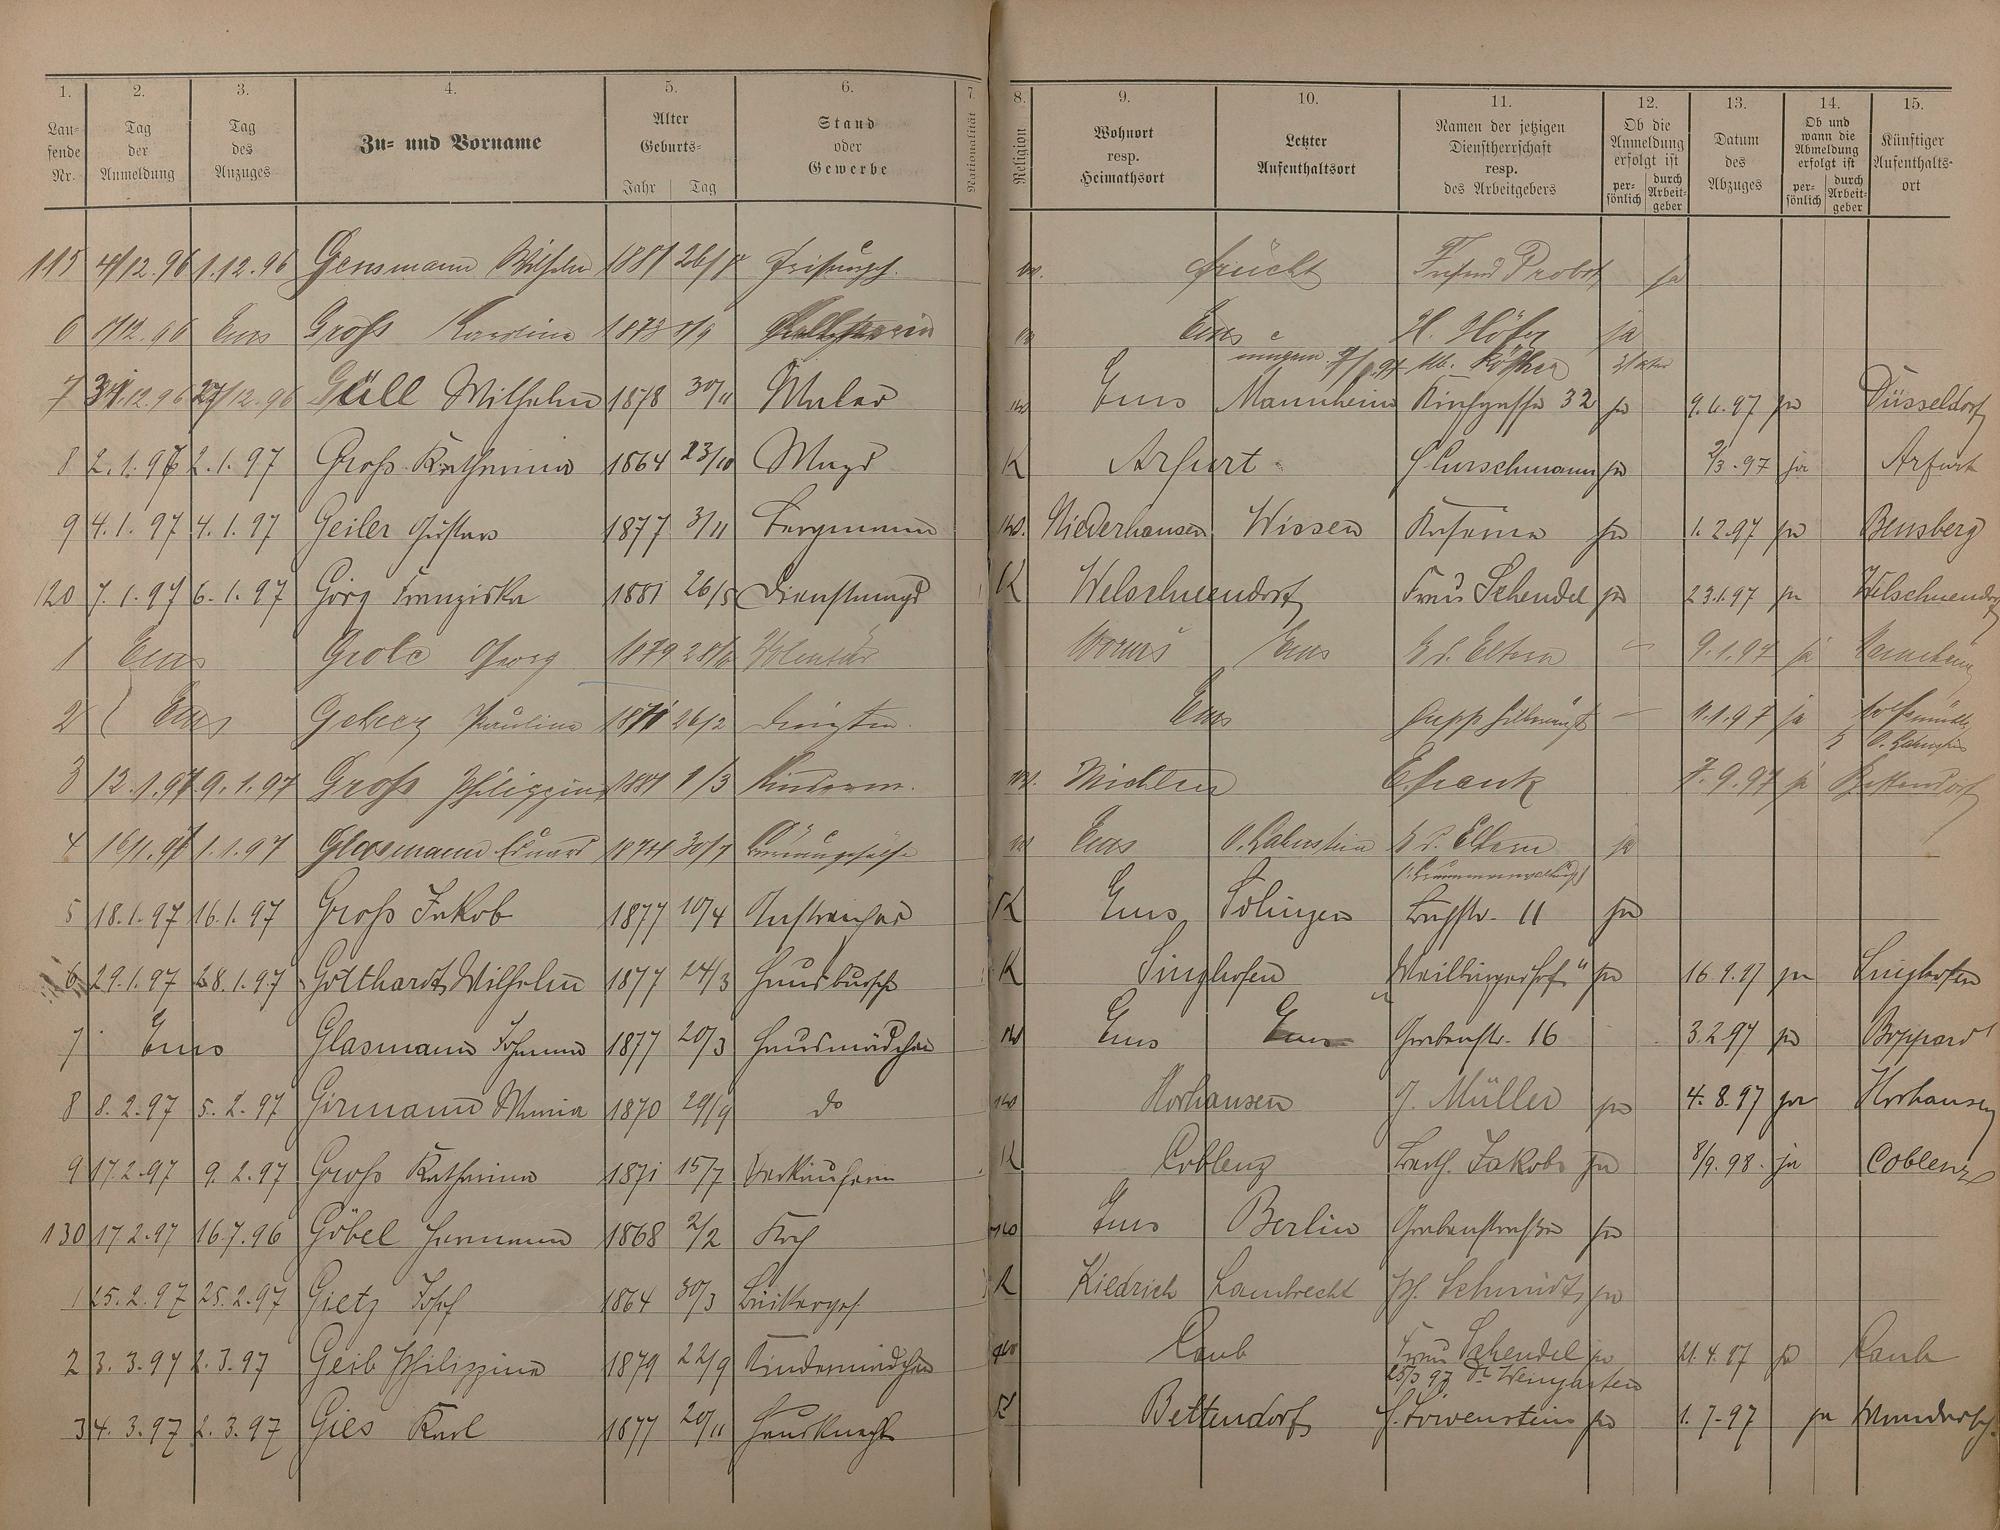 1. 2. 3. 4. 5. 6. 7. 8. 9. 10. 11. 12. 13. 14. 15.
Lau-
fende
Nr.
Tag
der
Anmeldung
Tag
des
Anzuges
Zu- und Vorname
Alter
Geburts-
Jahr Tag
Stand
oder
Gewerbe
Nationalität
Religion
Wohnort
resp.
Heimathsort
Letzter
Aufenthaltsort
Namen der jetzigen
Dienstherrschaft
resp.
des Arbeitgebers
Ob die
Anmeldung
erfolgt ist
per-
sönlich
durch
Arbeit-
geber
Datum
des
Abzuges
Ob und
wann die
Abmeldung
erfolgt ist
per-
sönlich
durch
Arbeit-
geber
Künftiger
Aufenthalts-
ort
115 4/12.96 1.12.96 Gensmann Wilhelm 1881 Frücht Probst ja
6 Ems Groß Karoline 1873 8/9 Ems H. Höfer ja
7 31.12.96 27/12.96 Güll Wilhelm 1878 30/11 Maler Ems Mannheim Kirchgasse 32 ja 9.6.97 ja Düsseldorf
8 2.1.97 2.1.97 Groß Katharina 1864 23/10 Magd K Arfurt Curschmann ja 2/3.97 ja Arfurt
9 4.1.97 4.1.97 Geiler Gustav 1877 3/11 Bergmann Niederhausen Wissen Kaserne ja 1.2.97 ja Bensberg
120 7.1.97 6.1.97 Görg Franziska 1881 26/5 Dienstmagd K Welschneudorf Frau Schendel ja 23.1.97 ja Welschneudorf
1 Ems Grolc Georg 1879 Volentär Worms Ems b. d. Eltern 9.1.97 ja
2 Ems Pauline 1871 26/2 Ems 11.1.97 ja
3 12.1.97 9.1.97 Groß Philippine 1881 1/3 Kinderm. E. Frank 7.9.97 ja Bettendorf
4 16/1.97 1.1.97 Glasmann Eduard 1874 30/7 Ems O. Lahnstein b. d. Eltern ja
5 18.1.97 16.1.97 Groß Jakob 1877 10/4 Anstreicher K Ems Solingen Bachstr. 11 ja
6 29.1.97 28.1.97 Gotthardt Wilhelm 1877 24/3 Hausbursche K Singhofen "Weilburgerhof" ja ja Singhofen
7 Ems Glasmann Johanna 1877 20/3 Hausmädchen Ems Ems Grabenstr. 16 3.2.97 ja Boppard
8 8.2.97 5.2.97 Girmann Maria 1870 29/9 do Horhausen J. Müller ja 4.8.97 ja Horhausen
9 17.2.97 9.2.97 Groß Katharina 1871 15/7 Verkäuferin K Coblenz Barth. Jakobs ja 8/9.98. ja Coblenz
130 17.2.97 16.7.96 Göbel Hermann 1868 2/2 Koch Ems Berlin Grabenstraße ja
1 25.2.97 25.2.97 Gietz Josef 1864 30/3 Bäckerges. K Kiedrich Lambrecht Ph. Schmidt ja
2 3.3.97 2.3.97 Geib Philippine 1879 22/9 Kindermädchen Caub Frau Schendel ja 21.4.97 ja Caub
25/3 97 Dr. Weingarten
3 4.3.97 2.3.97 Gies Karl 1877 20/11 Hausknecht K Bettendorf H. Löwenstein ja 1.7.97 ja